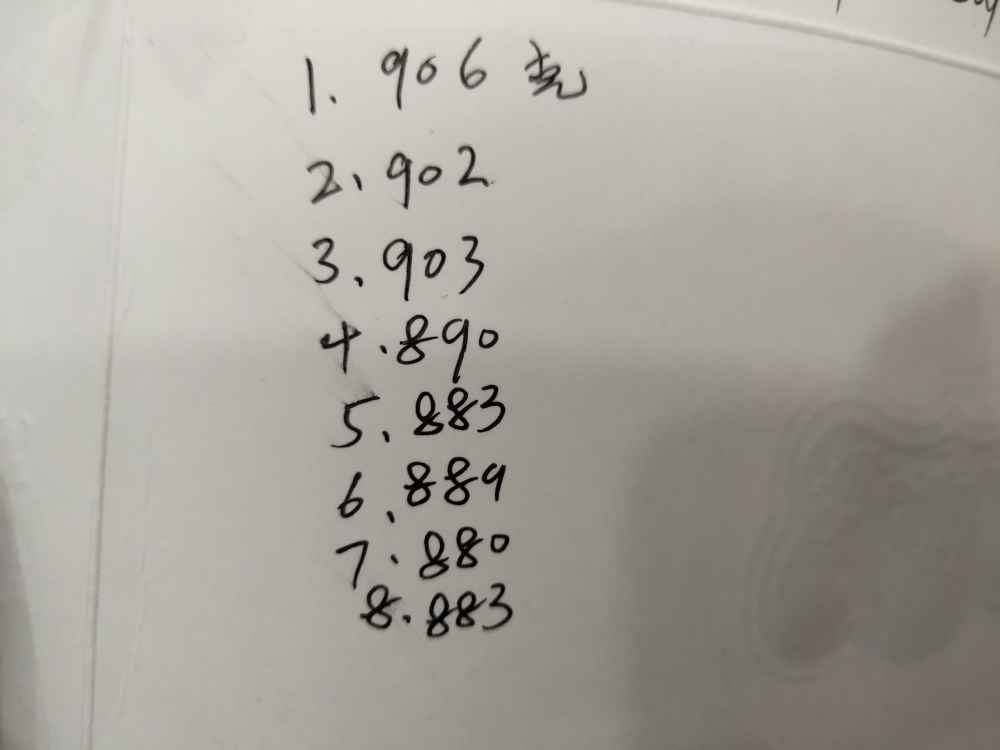 1. 906 克
2、902
3、903
4.890
5、883
6、889
7.880
8.883